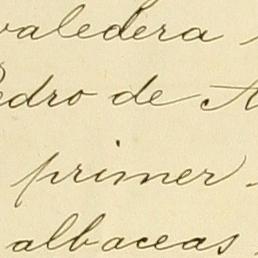 valedera
Pedro de A
primer
albaceas